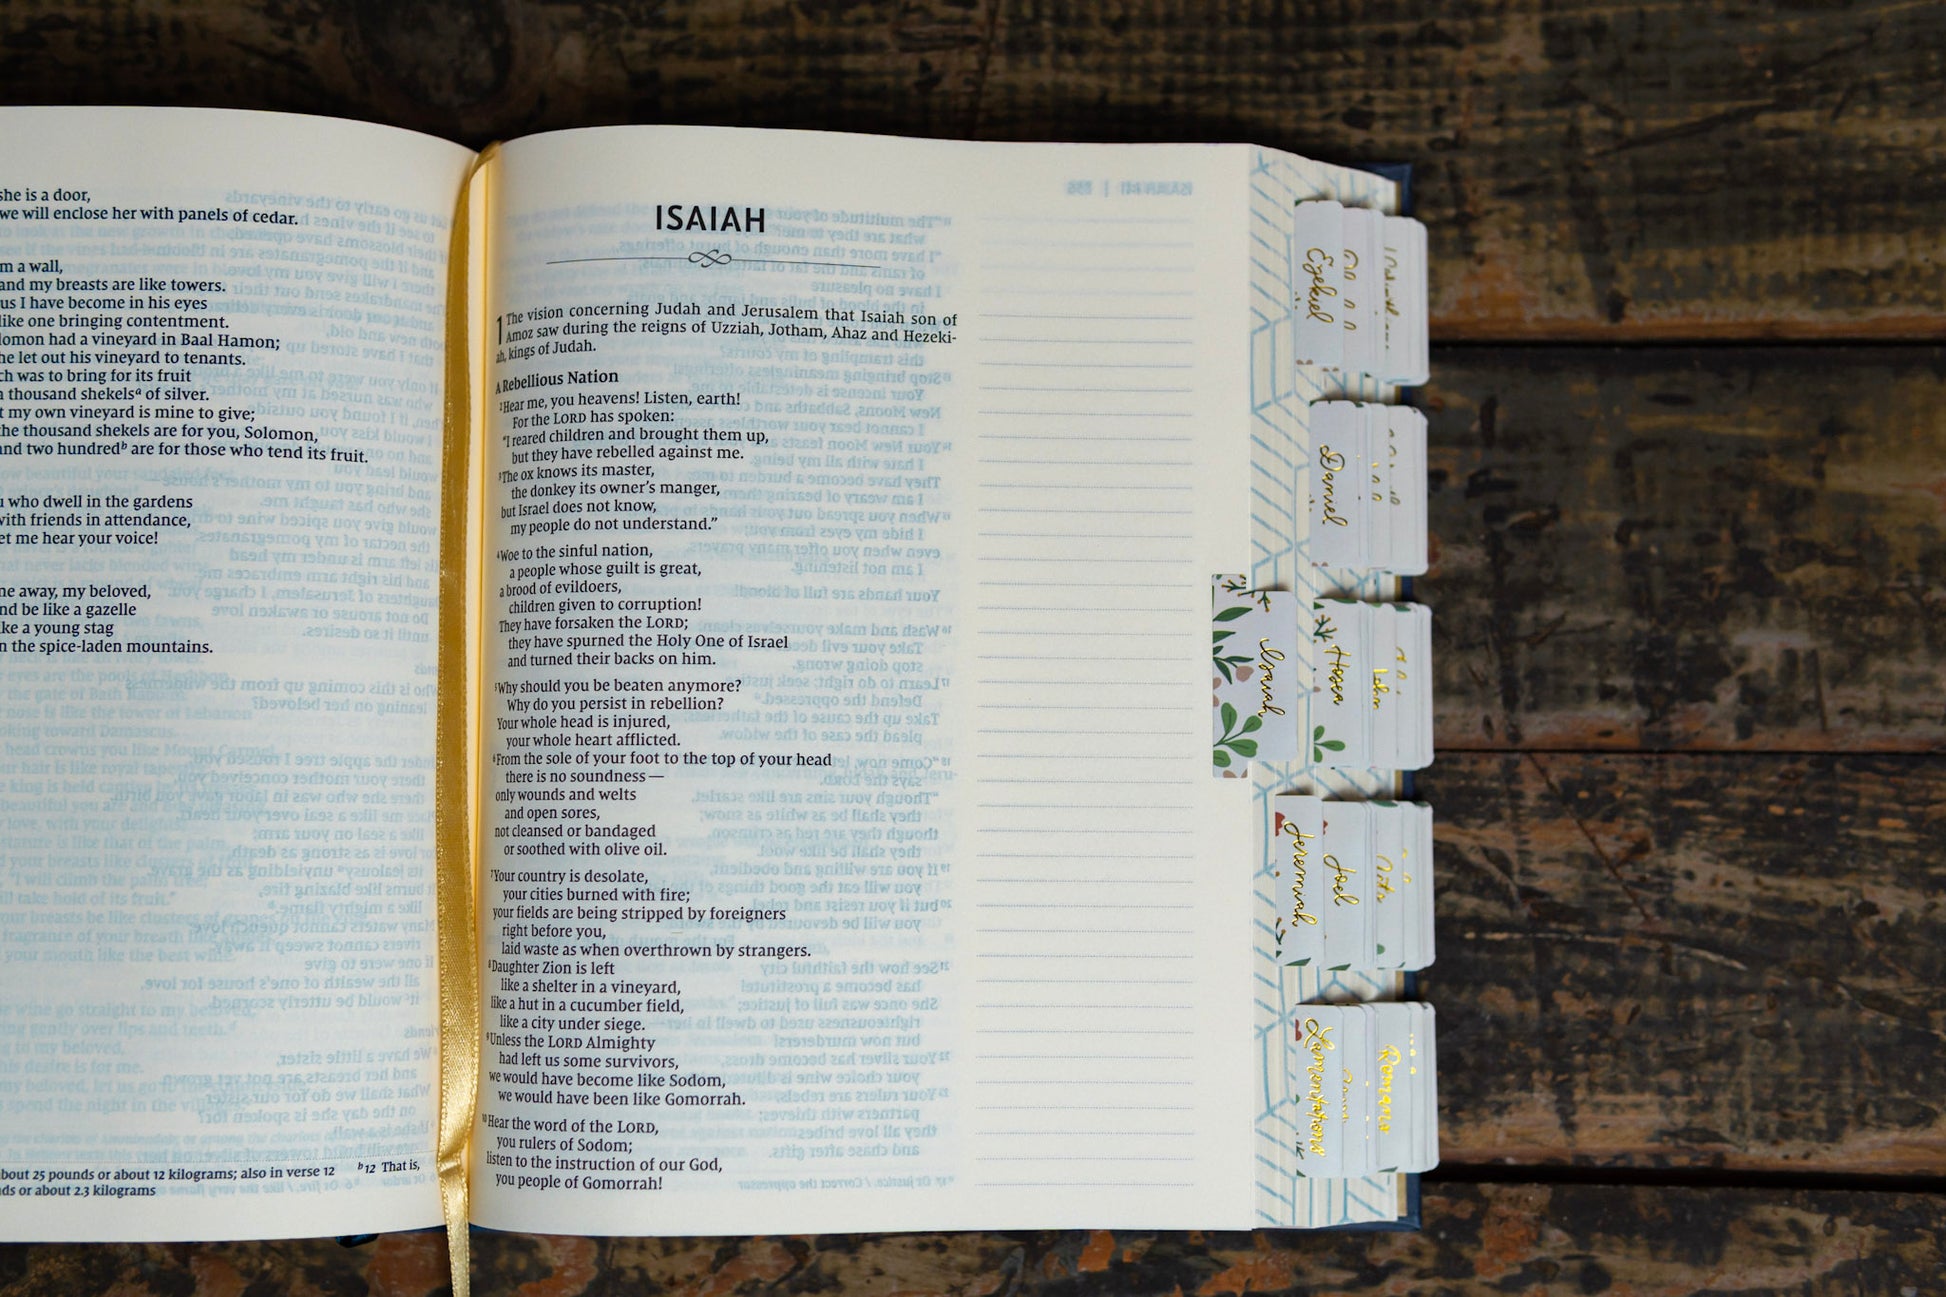 she is a door,
we will enclose her with panels of cedar.
m a wall,
and my breasts are like towers.
us I have become in his eyes
like one bringing contentment.
lomon had a vineyard in Baal Hamon;
he let out his vineyard to tenants.
ch was to bring for its fruit
a thousand shekelsᵃ of silver.
t my own vineyard is mine to give;
the thousand shekels are for you, Solomon,
and two hundredᵇ are for those who tend its fruit.
u who dwell in the gardens
with friends in attendance,
et me hear your voice!
me away, my beloved,
nd be like a gazelle
ke a young stag
n the spice-laden mountains.
bout 25 pounds or about 12 kilograms; also in verse 12 ᵇ12 That is,
ds or about 2.3 kilograms
ISAIAH
1 The vision concerning Judah and Jerusalem that Isaiah son of
Amoz saw during the reigns of Uzziah, Jotham, Ahaz and Hezeki-
ah, kings of Judah.
A Rebellious Nation
²Hear me, you heavens! Listen, earth!
For the LORD has spoken:
"I reared children and brought them up,
but they have rebelled against me.
³The ox knows its master,
the donkey its owner's manger,
but Israel does not know,
my people do not understand."
⁴Woe to the sinful nation,
a people whose guilt is great,
a brood of evildoers,
children given to corruption!
They have forsaken the LORD;
they have spurned the Holy One of Israel
and turned their backs on him.
⁵Why should you be beaten anymore?
Why do you persist in rebellion?
Your whole head is injured,
your whole heart afflicted.
⁶From the sole of your foot to the top of your head
there is no soundness—
only wounds and welts
and open sores,
not cleansed or bandaged
or soothed with olive oil.
⁷Your country is desolate,
your cities burned with fire;
your fields are being stripped by foreigners
right before you,
laid waste as when overthrown by strangers.
⁸Daughter Zion is left
like a shelter in a vineyard,
like a hut in a cucumber field,
like a city under siege.
⁹Unless the LORD Almighty
had left us some survivors,
we would have become like Sodom,
we would have been like Gomorrah.
¹⁰Hear the word of the LORD,
you rulers of Sodom;
listen to the instruction of our God,
you people of Gomorrah!
Ezekiel
Daniel
Isaiah
Hosea
John
Jeremiah
Joel
Acts
Lamentations
Romans